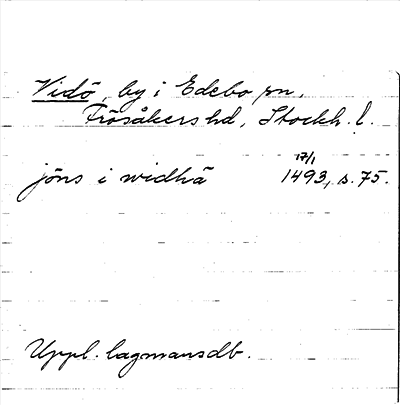 Vidö, by i Edebo sn,
Frösåkers hd, Stockh. l.
jöns i widhä 17/1 1493, s. 75.
Uppl. lagmansdb.